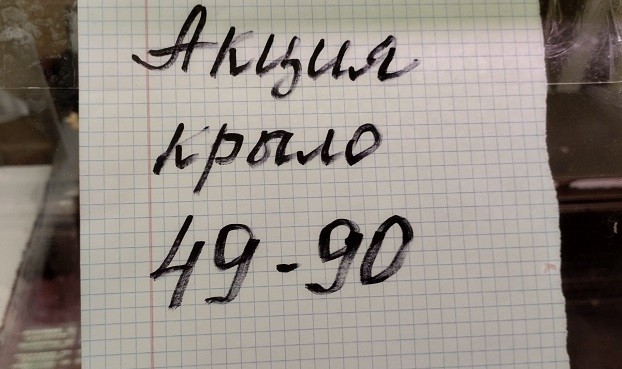 Акция
крыло
49-90